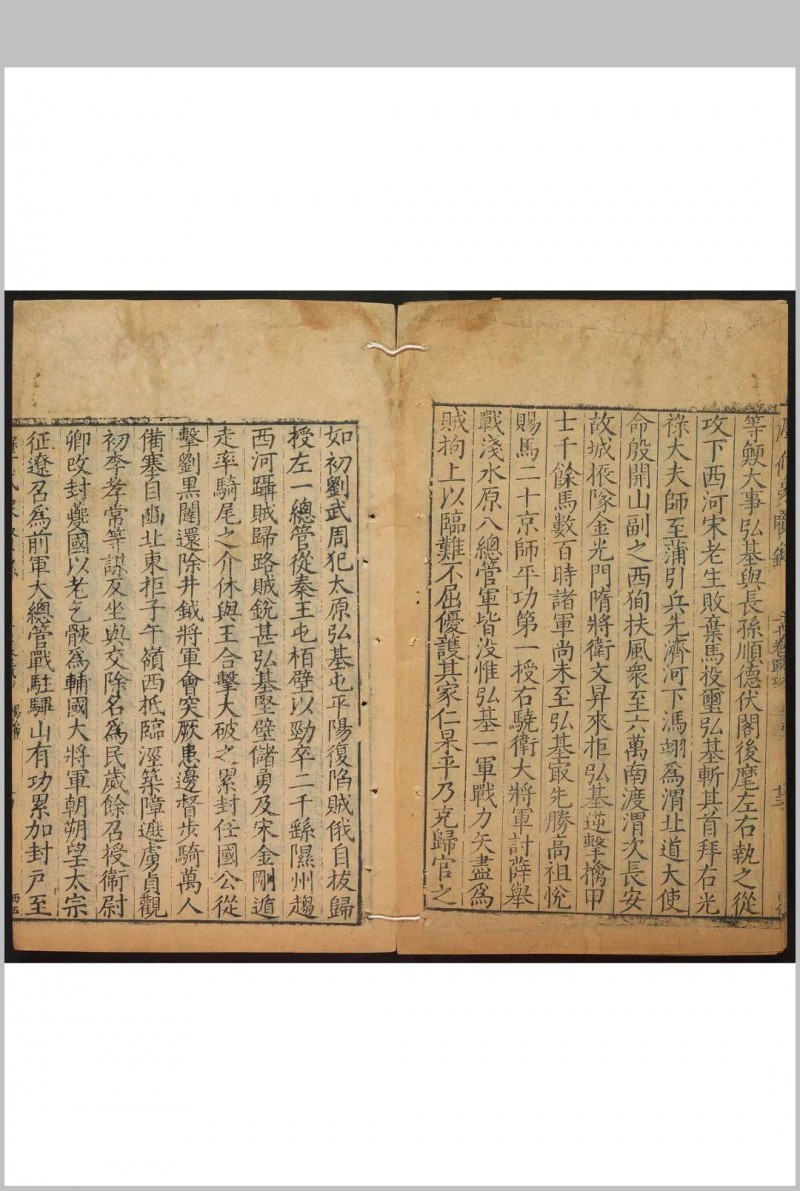 等鯁大事弘基與長孫順德伏閣後麾左右執之從
攻下西河宋老生敗棄馬投壍弘基斬其首拜右光
祿大夫師至蒲引兵先濟河下馮翊為渭北道大使
命殷開山副之西徇扶風衆至六萬南渡渭次長安
故城振隊金光門隋將衛文昇來拒弘基逆擊擒甲
士千餘馬數百時諸軍尚未至弘基冣先勝高祖悅
賜馬二十京師平功第一授右驍衛大將軍討薛舉
戰淺水原八總管軍皆沒惟弘基一軍戰力矢盡為
賊拘上以臨難不屈優護其家仁杲平乃克歸官之
如初劉武周犯太原弘基屯平陽復陷賊俄自拔歸
授左一總管從秦王屯栢壁以勁卒二千繇隰州趨
西河躡賊歸路賊銳甚弘基堅壁儲勇及宋金剛遁
走率騎尾之介休與王合擊大破之累封任國公從
擊劉黒闥還除井鉞將軍會突厥患邊督步騎萬人
備塞自豳北東拒子午嶺西抵臨涇築障遮虜貞觀
初李孝常等謀反坐與交除名為民歲餘召授衛尉
卿改封夔國以老乞骸為輔國大將軍朝朔望太宗
征遼召為前軍大總管戰駐驆山有功累加封戸至